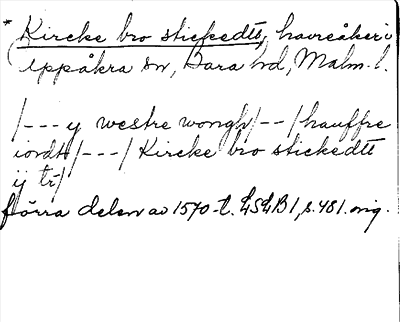 * Kircke bro stickedtt, havreåker i
Uppåkra sn, Bara hd, Malm. l.
/--- y westre wongh /--/ hauffre
iordt /---/ Kircke bro stickedtt
ij tr/
förra delen av 1570-t. LSLB 1, s. 481. orig.